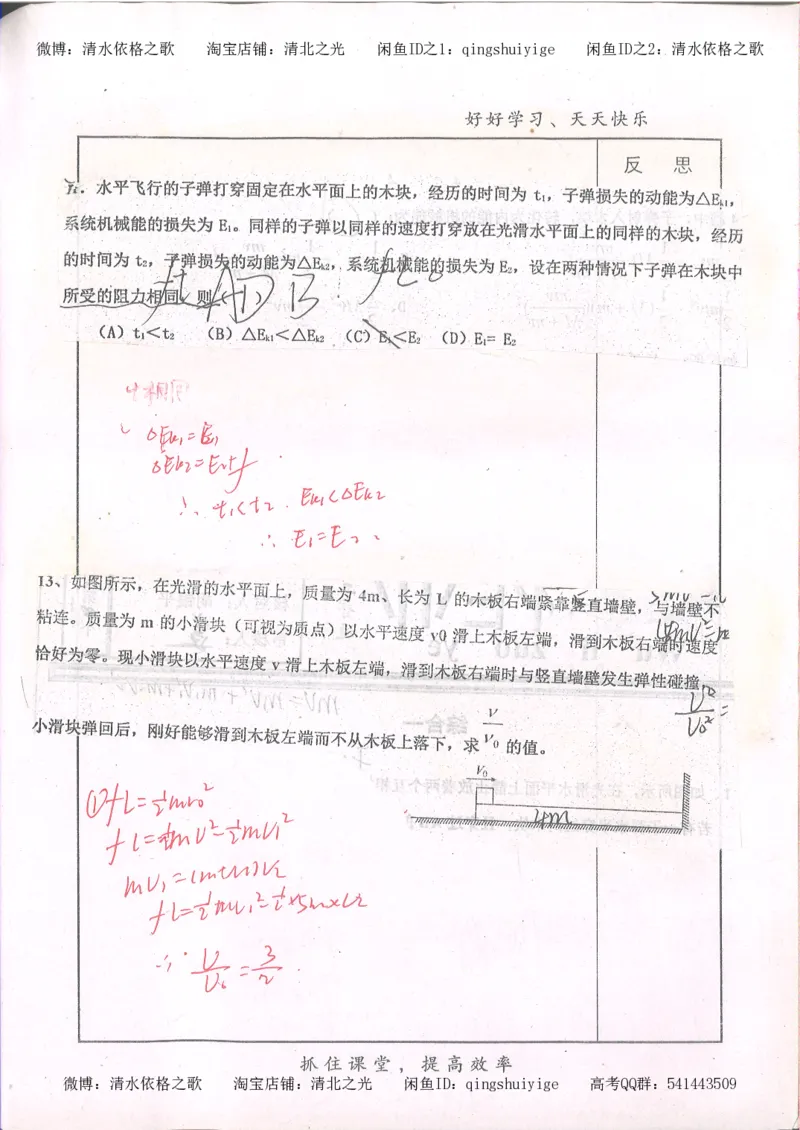 微博：清水依格之歌 淘宝店铺：清北之光 闲鱼ID之1：qingshuiyige 闲鱼ID之2：清水依格之歌
好好学习、天天快乐
反 思
五．水平飞行的子弹打穿固定在水平面上的木块，经历的时间为 t₁，子弹损失的动能为△Eₖ₁，
系统机械能的损失为 E₁。同样的子弹以同样的速度打穿放在光滑水平面上的同样的木块，经历
的时间为 t₂，子弹损失的动能为△Eₖ₂，系统机械能的损失为 E₂，设在两种情况下子弹在木块中
所受的阻力相同，则（D）
AD B
（A）t₁＜t₂ （B）△Eₖ₁＜△Eₖ₂ （C）E₁＜E₂ （D）E₁= E₂
ΔEk₁=E₁
∴ t₁<t₂ . Ek₁<ΔEk₂
∴ E₁=E₂
13、如图所示，在光滑的水平面上，质量为 4m、长为 L 的木板右端紧靠竖直墙壁，与墙壁不
粘连。质量为 m 的小滑块（可视为质点）以水平速度 v0 滑上木板左端，滑到木板右端时速度
恰好为零。现小滑块以水平速度 v 滑上木板左端，滑到木板右端时与竖直墙壁发生弹性碰撞，
小滑块弹回后，刚好能够滑到木板左端而不从木板上落下，求 v/v₀ 的值。
V₀
4m
①fL=½mv₀²
fL=½mV²-½mV₁²
mV₁=(m+4m)V₂
fL=½mV₁²-½×5m×V₂
∴ V/V₀=3/2
抓住课堂，提高效率
微博：清水依格之歌 淘宝店铺：清北之光 闲鱼ID：qingshuiyige 高考QQ群：541443509